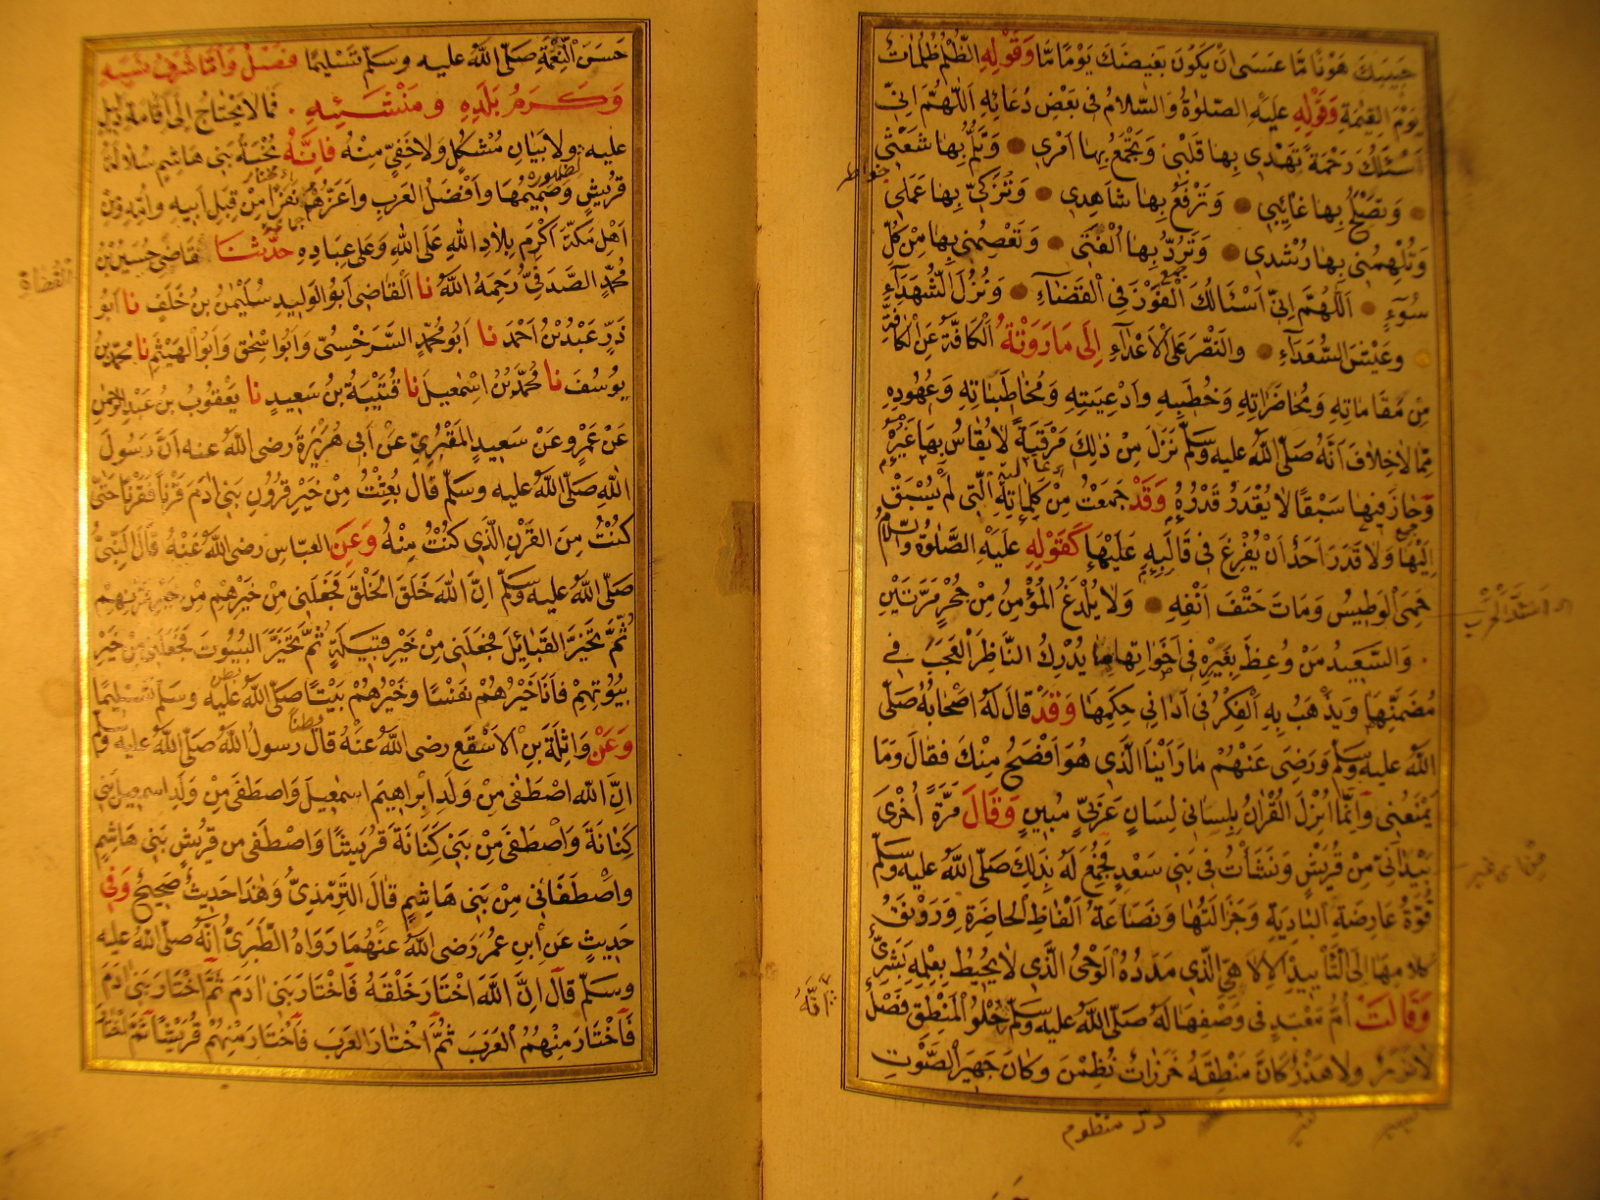 حَبِيبَكَ هَوْنًا مَّا عَسَى اَنْ يَكُونَ بَغِيضَكَ يَوْمًا مَّا وَقَوْلِهِ الظُّلْمُ ظُلُمَاتٌ
يَوْمَ الْقِيٰمَةِ وَقَوْلِهِ عليه الصَّلوٰةُ وَالسَّلامُ فى بَعْضِ دُعَائِهِ اَللّٰهُمَّ اِنّى
اَسْئَلُكَ رَحْمَةً تَهْدى بِهَا قَلْبى وَتَجْمَعُ بِهَا اَمْرى وَتَلُمُّ بِهَا شَعَثى
خواطر
وَتُصْلِحُ بِهَا غَائِبى وَتَرْفَعُ بِهَا شَاهِدى وَتُزَكِّى بِهَا عَمَلى
وَتُلْهِمُنى بِهَا رُشْدى وَتَرُدُّ بِهَا اُلْفَتى وَتَعْصِمُنى بِهَا مِنْ كُلِّ
سُوءٍ اَللّٰهُمَّ اِنّى اَسْئَالُكَ الْفَوْزَ فى الْقَضَاءِ وَنُزُلَ الشُّهَدَاءِ
وَعَيْشَ السُّعَدَاءِ وَالنَّصْرَ عَلَى الْاَعْدَاءِ اِلَى مَا رَوَتْهُ الْكَافَّةُ عَنِ الْكَافَّةِ
مِنْ مَقَامَاتِهِ وَمُحَاضَرَاتِهِ وَخُطَبِهِ وَاَدْعِيَتِهِ وَمُخَاطَبَاتِهِ وَعُهُودِهِ
مِمَّا لَاخِلَافَ اَنَّهُ صَلَّى اللّٰهُ عليه وسَلَّمَ نَزَلَ مِنْ ذٰلِكَ مَرْقَبَةً لَا يُقَاسُ بِهَا غَيْرُهُ
وَحَازَ فِيهَا سَبْقًا لَا يُقْدَرُ قَدْرُهُ وَقَدْ جَمَعْتُ مِنْ كَلِمَاتِهِ الَّتى لَمْ يُسْبَقْ
اِلَيْهَا وَلَا قَدَرَ اَحَدٌ اَنْ يُفْرِغَ فى قَالَبِهِ عَلَيْهَا كَقَوْلِهِ عَلَيْهِ الصَّلوٰةُ وَالسَّلَامُ
حَمِىَ الْوَطِيسُ وَمَاتَ حَتْفَ اَنْفِهِ وَلَا يُلْدَغُ الْمُؤْمِنُ مِنْ جُحْرٍ مَرَّتَيْنِ
وَالسَّعِيدُ مَنْ وُعِظَ بِغَيْرِهِ فى اَخَوَاتِهَا مَا يُدْرِكُ النَّاظِرُ الْعَجَبَ فى
مُضَمَّنِهَا وَيَذْهَبُ بِهِ الْفِكْرُ فى اَدَانى حِكَمِهَا وَقَدْ قَالَ لَهُ اَصْحَابُهُ صَلَّى
اللّٰهُ عليه وسَلَّمَ وَرَضِىَ عَنْهُمْ مَا رَاَيْنَا الَّذى هُوَ اَفْصَحُ مِنْكَ فَقَالَ وَمَا
يَمْنَعُنى وَاِنَّمَا اُنْزِلَ الْقُرْاٰنُ بِلِسَانى لِسَانٍ عَرَبِىٍّ مُبِينٍ وَقَالَ مَرَّةً اُخْرَى
بَيْدَ اَنّى مِنْ قُرَيْشٍ وَنَشَأْتُ فى بَنى سَعْدٍ فَجُمِعَ لَهُ بِذٰلِكَ صَلَّى اللّٰهُ عليه وسَلَّمَ
قُوَّةُ عَارِضَةِ الْبَادِيَةِ وَجَزَالَتُهَا وَنَصَاعَةُ اَلْفَاظِ الْحَاضِرَةِ وَرَوْنَقُ
كلَامِهَا اِلَى التَّأْيِيدِ الْاِلٰهِىِّ الَّذى مَدَدُهُ الْوَحْىُ الَّذى لَا يُحِيطُ بِعِلْمِهِ بَشَرِىٌّ
وَقَالَتْ اُمُّ مَعْبَدٍ فى وَصْفِهَا لَهُ صَلَّى اللّٰهُ عليه وسَلَّمَ حُلْوُ الْمَنْطِقِ فَصْلٌ
لَا نَزْرٌ ولَا هَذْرٌ كَانَّ مَنْطِقَهُ خَرَزَاتٌ نُظِمْنَ وَكَانَ جَهِيرَ الصَّوْتِ
درّ منظوم
حَسَنَ النَّغْمَةِ صَلَّى اللّٰهُ عليه وسلّم تَسْلِيمًا فَصْلٌ وَاَمَّا شَرَفُ نَسَبِهِ
وَكَرَمُ بَلَدِهِ وَمَنْشَئِهِ فَمَا لَا يَحْتَاجُ اِلَى اِقَامَةِ دَلِيلٍ
عليه ولا بَيَانِ مُشْكِلٍ وَلَا خَفِىٍّ مِنْهُ فَاِنَّهُ نُخْبَةُ بَنى هَاشِمٍ سُلَالَةُ
قُرَيْشٍ وَصَمِيمُهَا وَاَفْضَلُ الْعَرَبِ وَاَعَزُّهُمْ نَفَرًا مِنْ قِبَلِ اَبِيهِ وَاُمِّهِ وَمِنْ
اَهْلِ مَكَّةَ اَكْرَمِ بِلَادِ اللّٰهِ عَلَى اللّٰهِ وَعَلَى عِبَادِهِ حَدَّثَنَا قَاضى حُسَيْنُ بْنُ
القضاة
مُحَمَّدٍ الصَّدَفِىُّ رَحِمَهُ اللّٰهُ نا الْقَاضى اَبُو الْوَلِيدِ سُلَيْمٰنُ بْنُ خَلَفٍ نا اَبُو
ذَرٍّ عَبْدُ بْنُ اَحْمَدَ نا اَبُو مُحَمَّدٍ السَّرَخْسِىُّ وَاَبُو اِسْحٰقَ وَاَبُو الْهَيْثَمِ نا مُحَمَّدُ بْنُ
يُوسُفَ نا مُحَمَّدُ بْنُ اِسْمٰعِيلَ نا قُتَيْبَةُ بْنُ سَعِيدٍ نا يَعْقُوبُ بْنُ عَبْدِ الرَّحْمٰنِ
عَنْ عَمْرٍو عَنْ سَعِيدٍ الْمَقْبُرِىِّ عَنْ اَبى هُرَيْرَةَ رضى اللّٰهُ عنه اَنَّ رَسُولَ
اللّٰهِ صَلَّى اللّٰهُ عليه وسَلَّمَ قال بُعِثْتُ مِنْ خَيْرِ قُرُونِ بَنى اٰدَمَ قَرْنًا فَقَرْنًا حَتَّى
كُنْتُ مِنَ الْقَرْنِ الَّذى كُنْتُ مِنْهُ وَعَنِ العبّاسِ رضى اللّٰهُ عَنْهُ قَالَ النَّبِىُّ
صَلَّى اللّٰهُ عليه وسَلَّمَ اِنَّ اللّٰهَ خَلَقَ الْخَلْقَ فَجَعَلَنى مِنْ خَيْرِهِمْ مِنْ خَيْرِ قَرْنِهِمْ
ثُمَّ تَخَيَّرَ الْقَبَائِلَ فَجَعَلَنى مِنْ خَيْرِ قَبِيلَةٍ ثُمَّ تَخَيَّرَ الْبُيُوتَ فَجَعَلَنى مِنْ خَيْرِ
بُيُوتِهِمْ فَاَنَا خَيْرُهُمْ نَفْسًا وَخَيْرُهُمْ بَيْتًا صَلَّى اللّٰهُ عليه وسَلَّمَ تَسْلِيمًا
وَعَنْ وَاثِلَةَ بنِ الْاَسْقَعِ رضى اللّٰهُ عَنْهُ قَالَ رَسُولُ اللّٰهِ صَلَّى اللّٰهُ عليه وسَلَّمَ
اِنَّ اللّٰهَ اصْطَفَى مِنْ وَلَدِ اِبْرَاهِيمَ اِسْمٰعِيلَ وَاصْطَفَى مِنْ وَلَدِ اِسْمٰعِيلَ بَنى
كِنَانَةَ وَاصْطَفَى مِنْ بَنى كِنَانَةَ قُرَيْشًا وَاصْطَفَى مِن قُرَيْشٍ بَنى هَاشِمٍ
وَاصْطَفَانى مِنْ بَنى هَاشِمٍ قَالَ التِّرْمِذِىُّ وَهٰذَا حَدِيثٌ صَحِيحٌ وَفى
حَدِيثٍ عَنِ ابْنِ عُمَرَ رَضى اللّٰهُ عَنْهُمَا رَوَاهُ الطَّبَرِىُّ اَنَّهُ صَلَّى اللّٰهُ عليه
وسَلَّمَ قَالَ اِنَّ اللّٰهَ اخْتَارَ خَلْقَهُ فَاخْتَارَ بَنى اٰدَمَ ثُمَّ اخْتَارَ بَنى اٰدَمَ
فَاخْتَارَ مِنْهُمُ الْعَرَبَ ثُمَّ اخْتَارَ الْعَرَبَ فَاخْتَارَ مِنْهُمْ قُرَيْشًا ثُمَّ اخْتَارَ